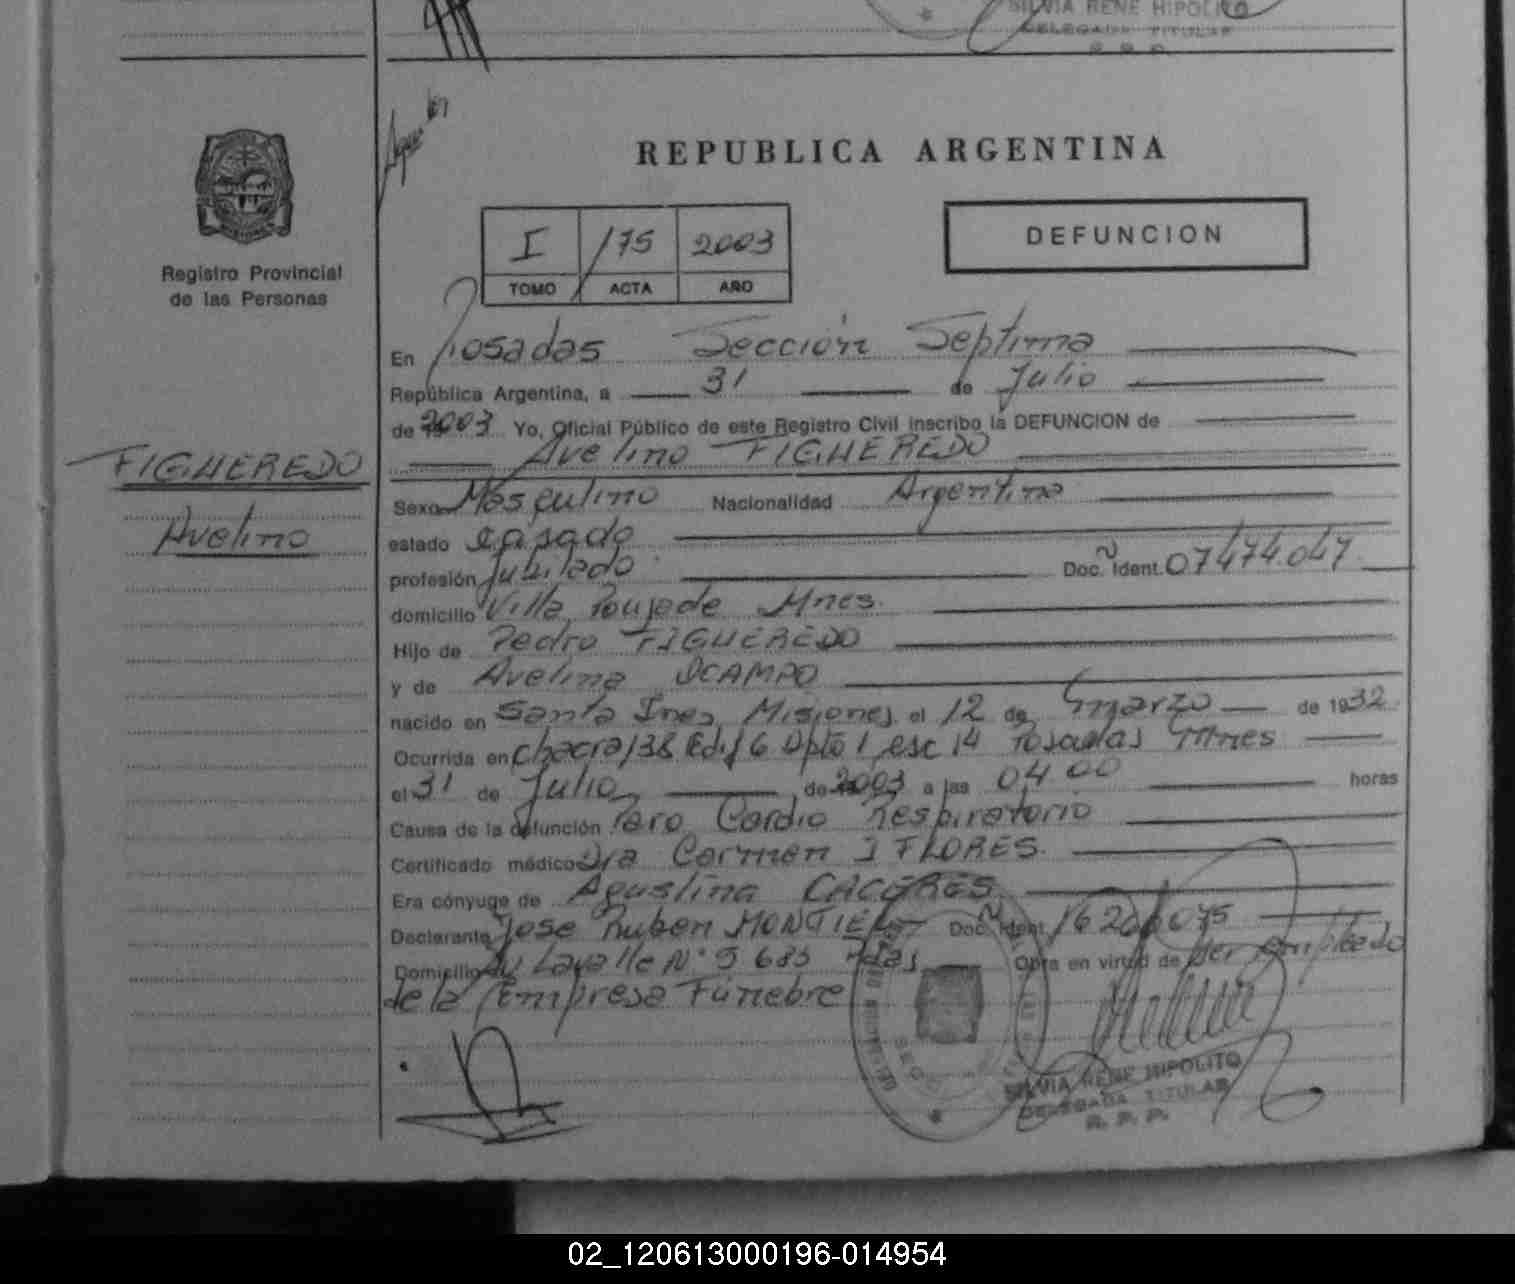 SILVIA RENE HIPOLITO
DELEGADA TITULAR
R. P. P.
REPUBLICA ARGENTINA
Registro Provincial
de las Personas
I 175 2003
TOMO ACTA AÑO
DEFUNCION
En Posadas Sección Septima
República Argentina, a 31 de Julio
de 2003 Yo, Oficial Público de este Registro Civil inscribo la DEFUNCION de
Avelino FIGUEREDO
FIGUEREDO
Avelino
Sexo Masculino Nacionalidad Argentina
estado casado
profesión Jubilado Doc. Ident. 07474.047
domicilio Villa Poujade Mnes.
Hijo de Pedro FIGUEREDO
y de Avelina OCAMPO
nacido en Santa Ines, Misiones el 12 de marzo de 1932
Ocurrida en chacra 138 Edif 6 Dpto 1, esc 14 Posadas Mnes
el 31 de Julio de 2003 a las 04 00 horas
Causa de la defunción Paro Cardio Respiratorio
Certificado médico Dra Carmen I FLORES.
Era cónyuge de Agustina CACERES
Declarante Jose Ruben MONTIEL Doc. Ident. 16200075
Domicilio Av Lavalle N° 5 685 Pdas Obra en virtud de ser empleado
de la Empresa Fúnebre
SILVIA RENE HIPOLITO
DELEGADA TITULAR
R. P. P.
02_120613000196-014954